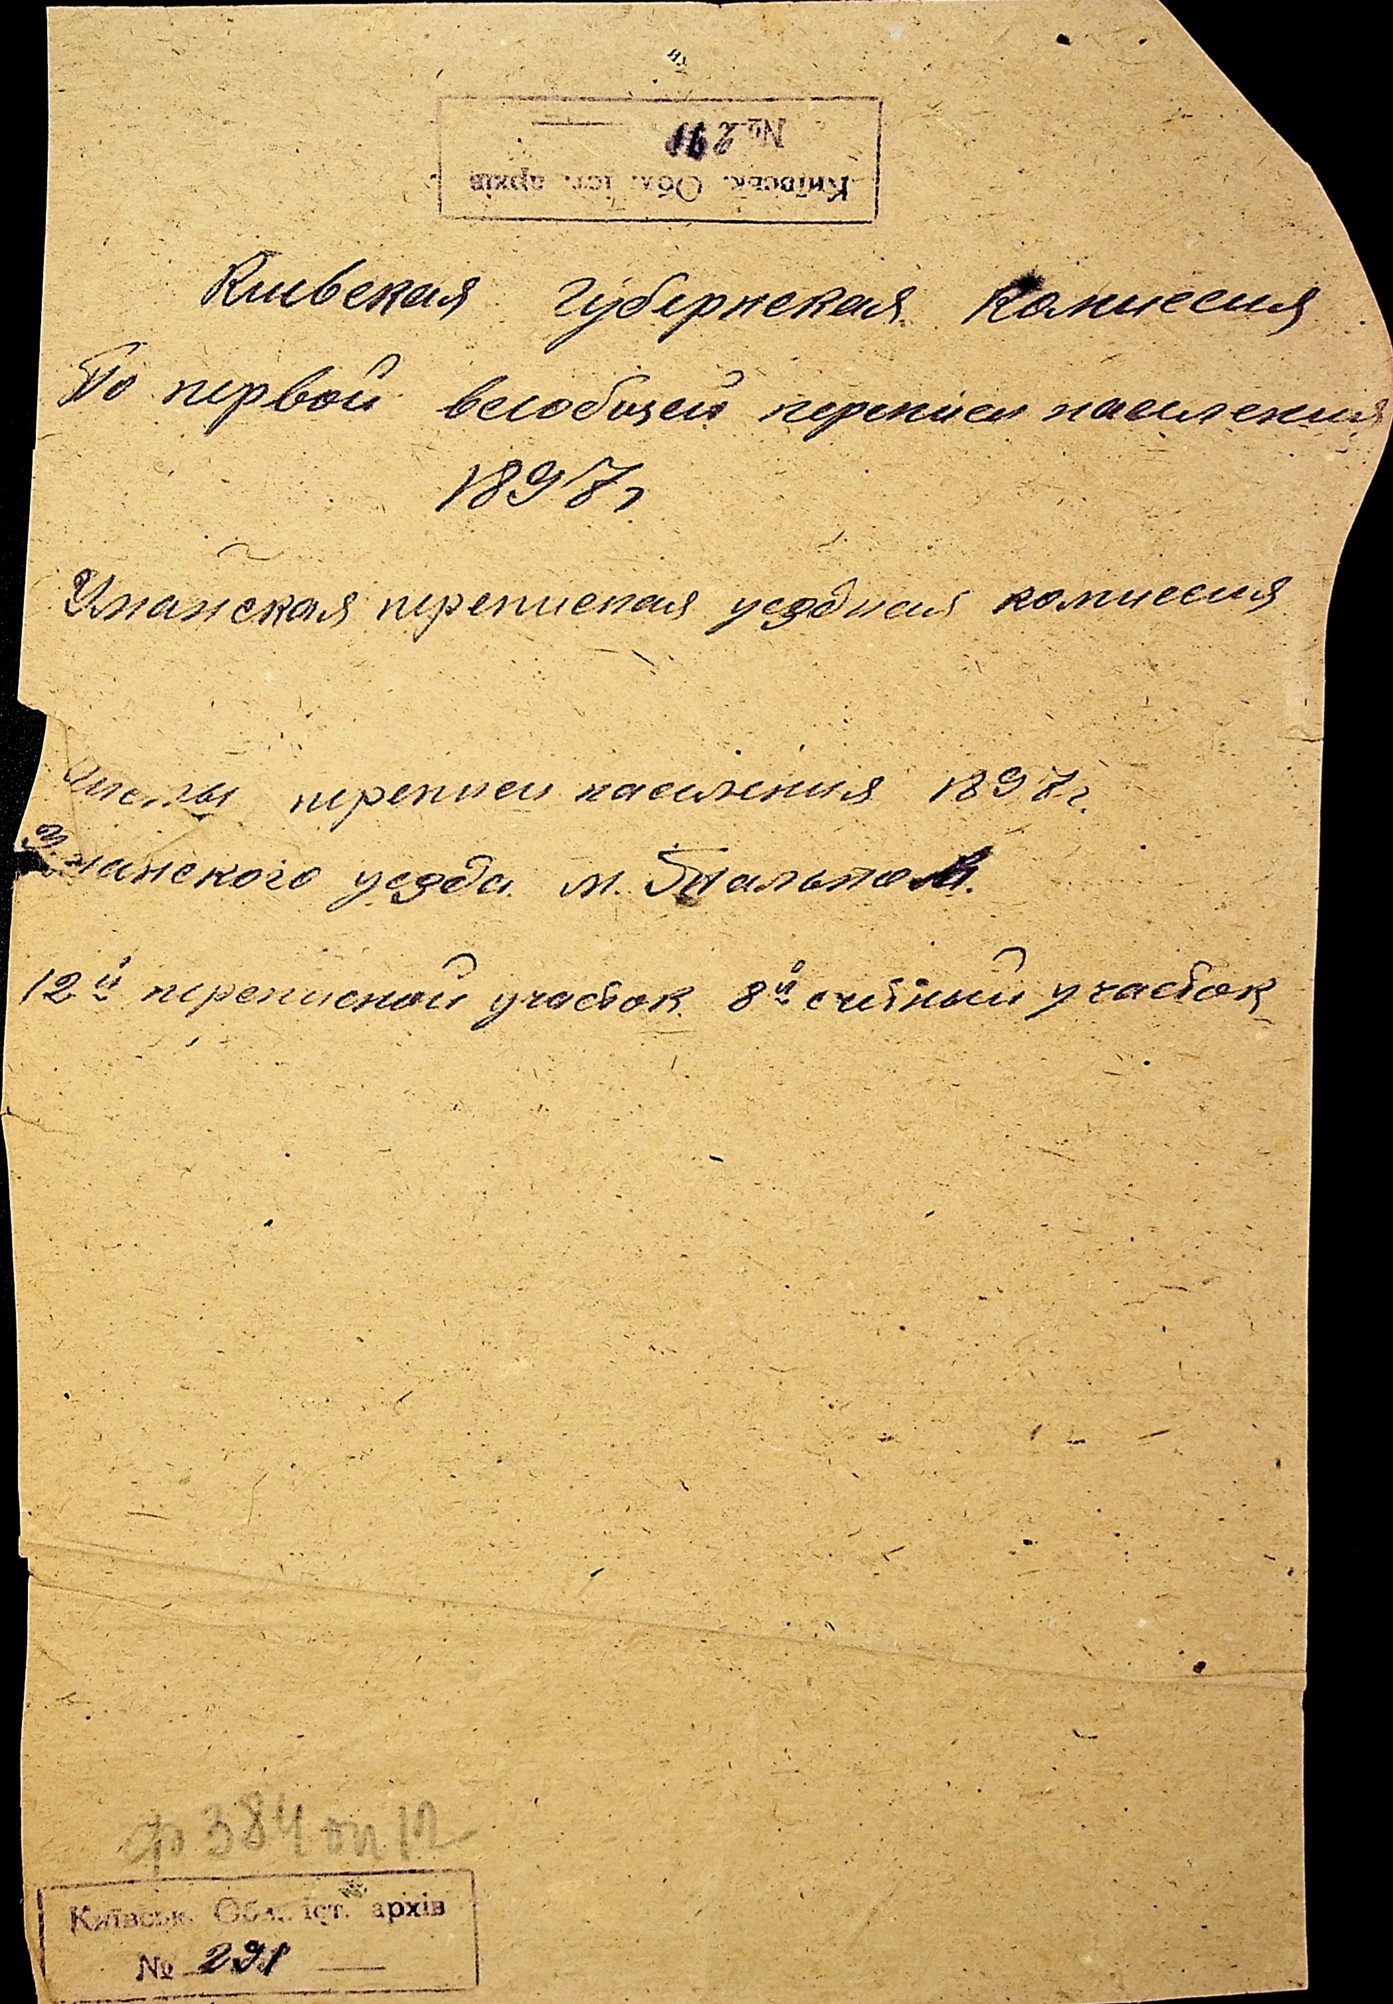 № 291
Київськ. Обл. іст. архів
Киевская Губернская Комиссия
По первой всеобщей переписи населения
1897г
Уманская переписная уездная комиссия
Листы переписи населения 1897г.
Уманского уезда м. Тальное.
12й переписной участок 8й счетный участок
ф 384 оп 12
Київськ. Обл. іст. архів
№ 291